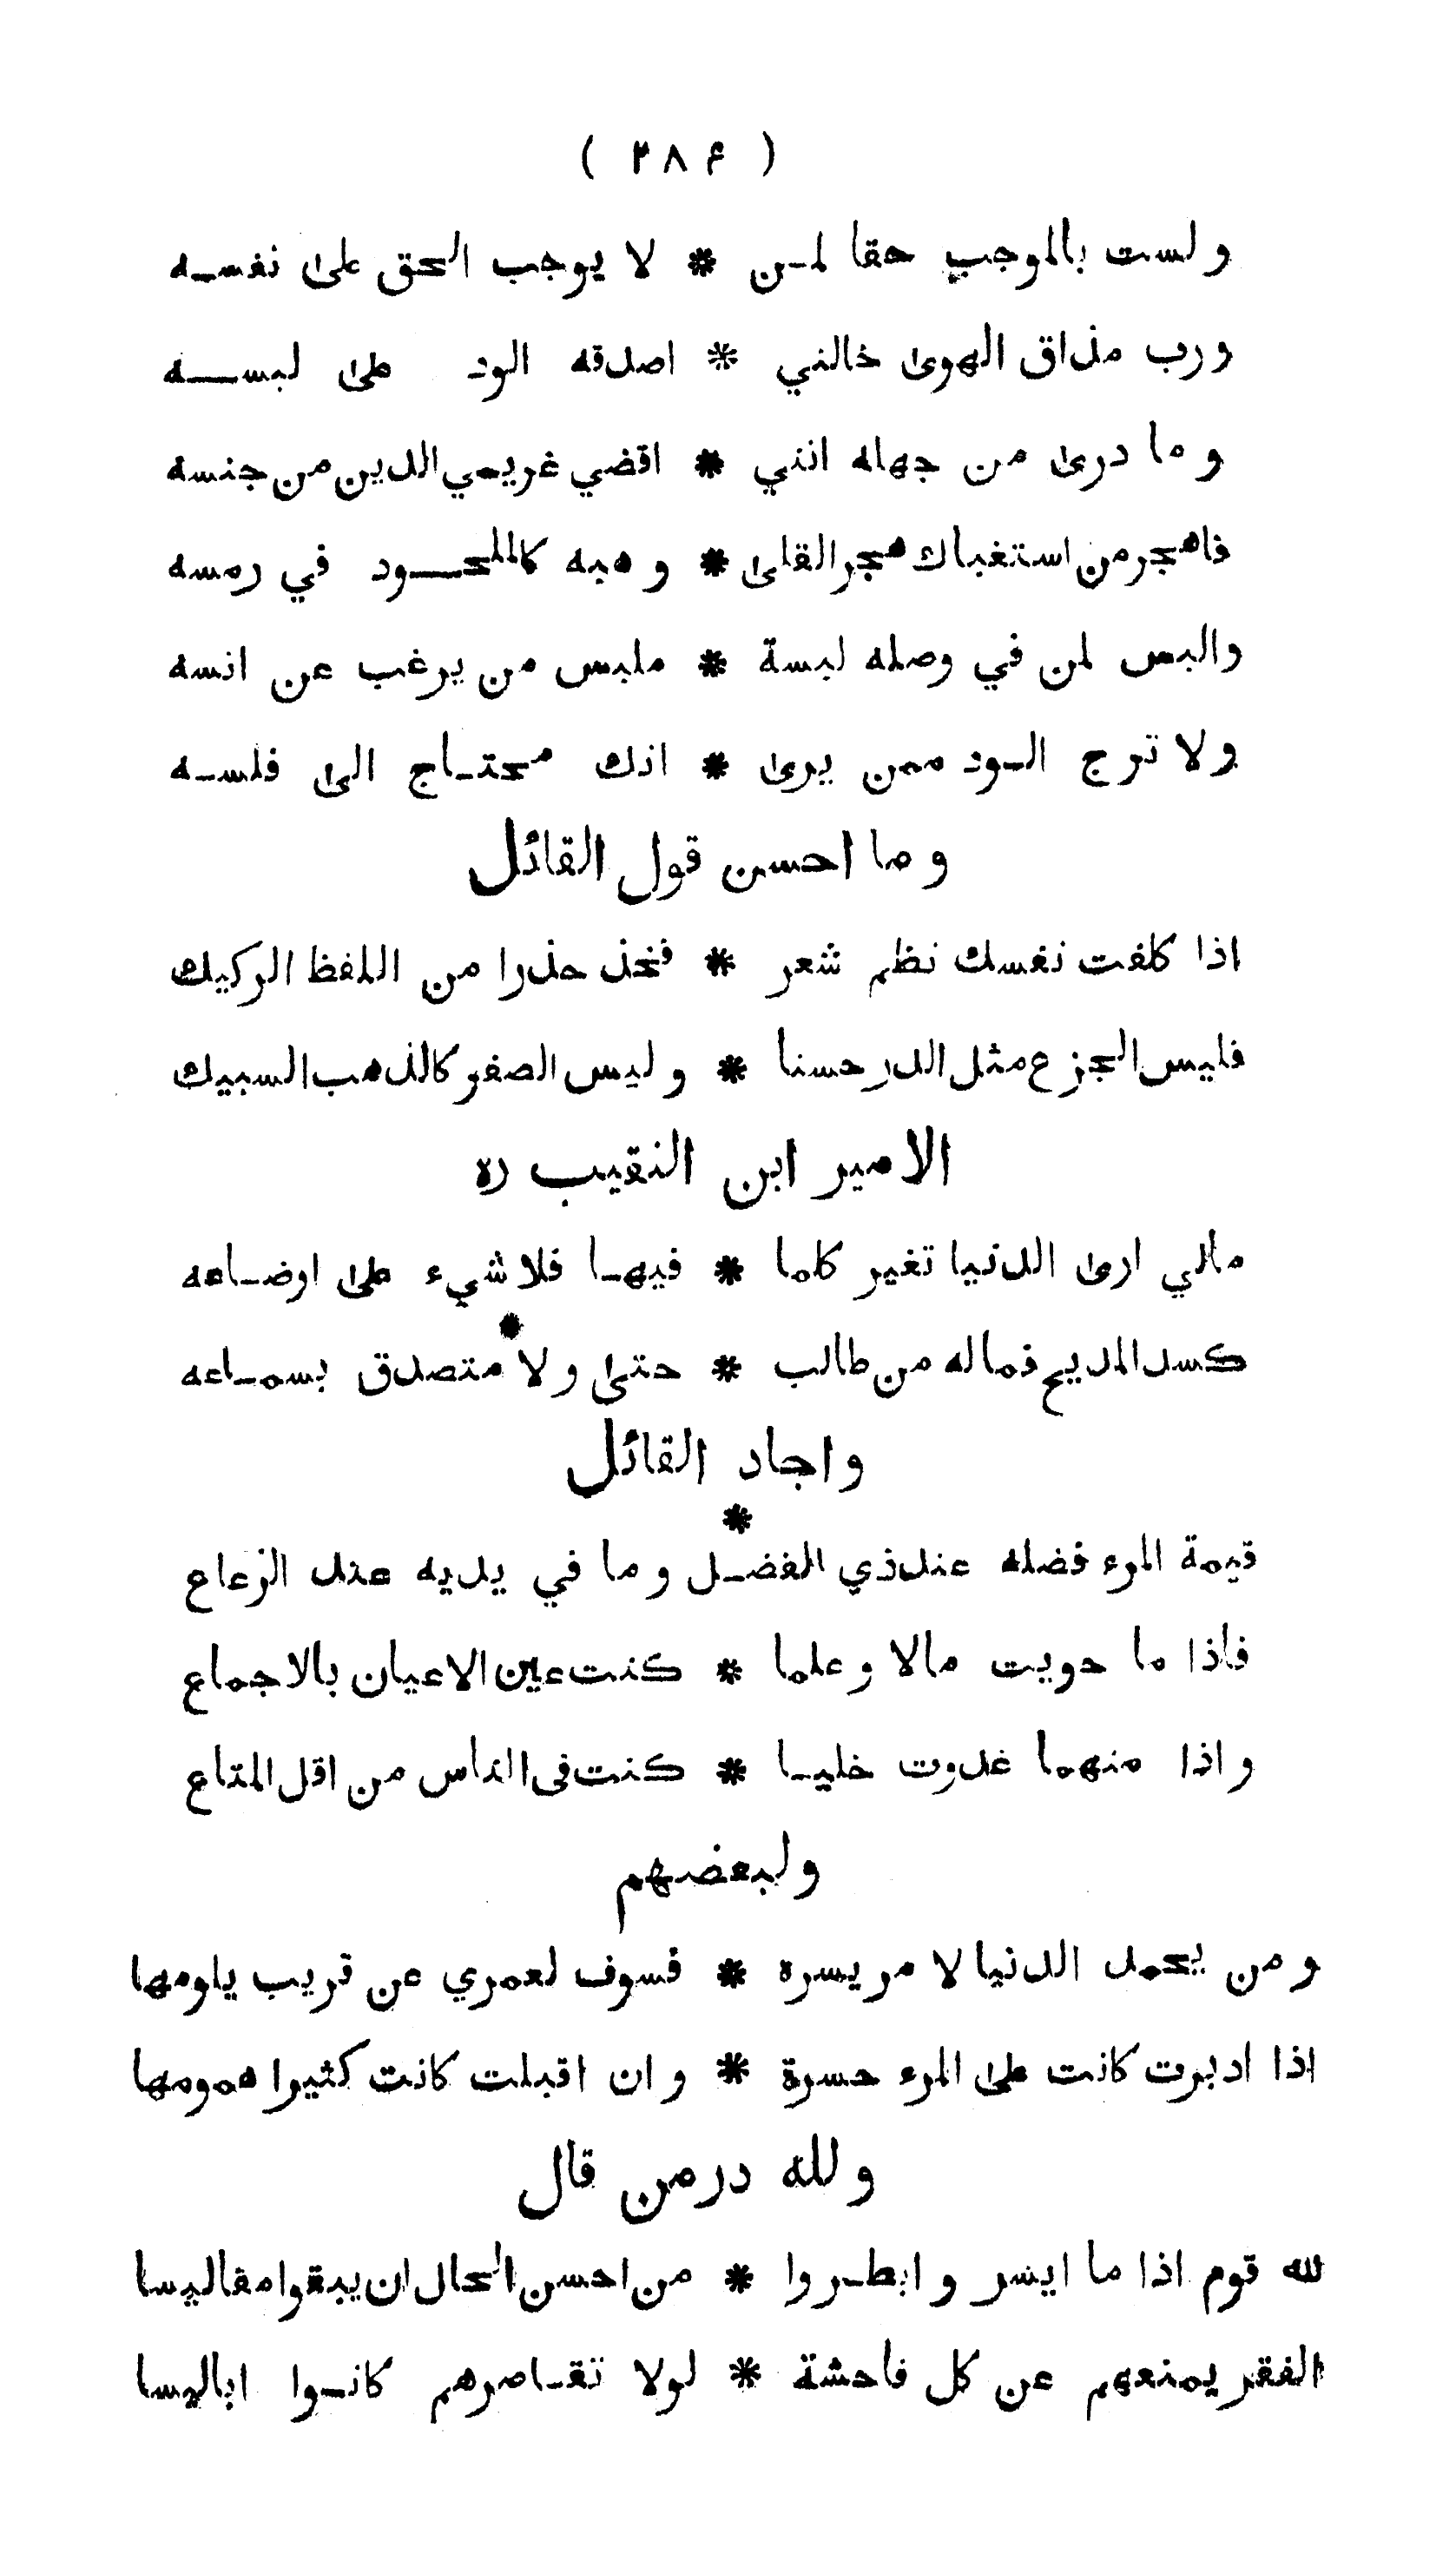 ( ٢٨۴ )
ولست بالموجب حقا لمـن * لا يوجب الحق على نفسـه
ورب مذاق الهوى خالني * اصدقه الود على لبســه
وما درى من جهله انني * اقضي غريمي الدين من جنسه
فاهجر من استغباك هجر القلى * وهبه كالملحــود في رمسه
والبس لمن في وصله لبسة * ملبس من يرغب عن انسه
ولا ترج الـود ممن يرى * انك محتـاج الى فلسـه
وما احسن قول القائل
اذا كلفت نفسك نظم شعر * فخذ حذرا من اللفظ الركيك
فليس الجزع مثل الدر حسنا * وليس الصفر كالذهب السبيك
الامير ابن النقيب ره
مالي ارى الدنيا تغير كلما * فيهـا فلا شيء على اوضـاعه
كسد المديح فماله من طالب * حتى ولا متصدق بسمـاعه
واجاد القائل
قيمة المرء فضله عند ذي الفضـل * وما في يديه عند الرعاع
فاذا ما حويت مالا وعلما * كنت عين الاعيان بالاجماع
واذا منهما غدوت خليـا * كنت فى الناس من اقل المتاع
ولبعضهم
ومن يحمد الدنيا لامر يسره * فسوف لعمري عن قريب يلومها
اذا ادبرت كانت على المرء حسرة * وان اقبلت كانت كثيرا همومها
ولله در من قال
لله قوم اذا ما ايسروا بطـروا * من احسن الحال ان يبقوا مفاليسا
الفقر يمنعهم عن كل فاحشة * لولا تقـاصرهم كانـوا اباليسا